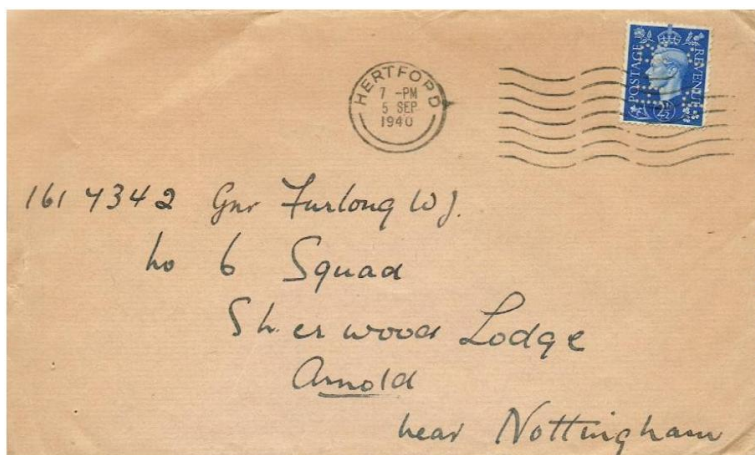 HERTFORD
7 -PM
5 SEP
1940
POSTAGE REVENUE
2½
1617342 Gnr Furlong W J.
No 6 Squad
Sherwood Lodge
Arnold
near Nottingham